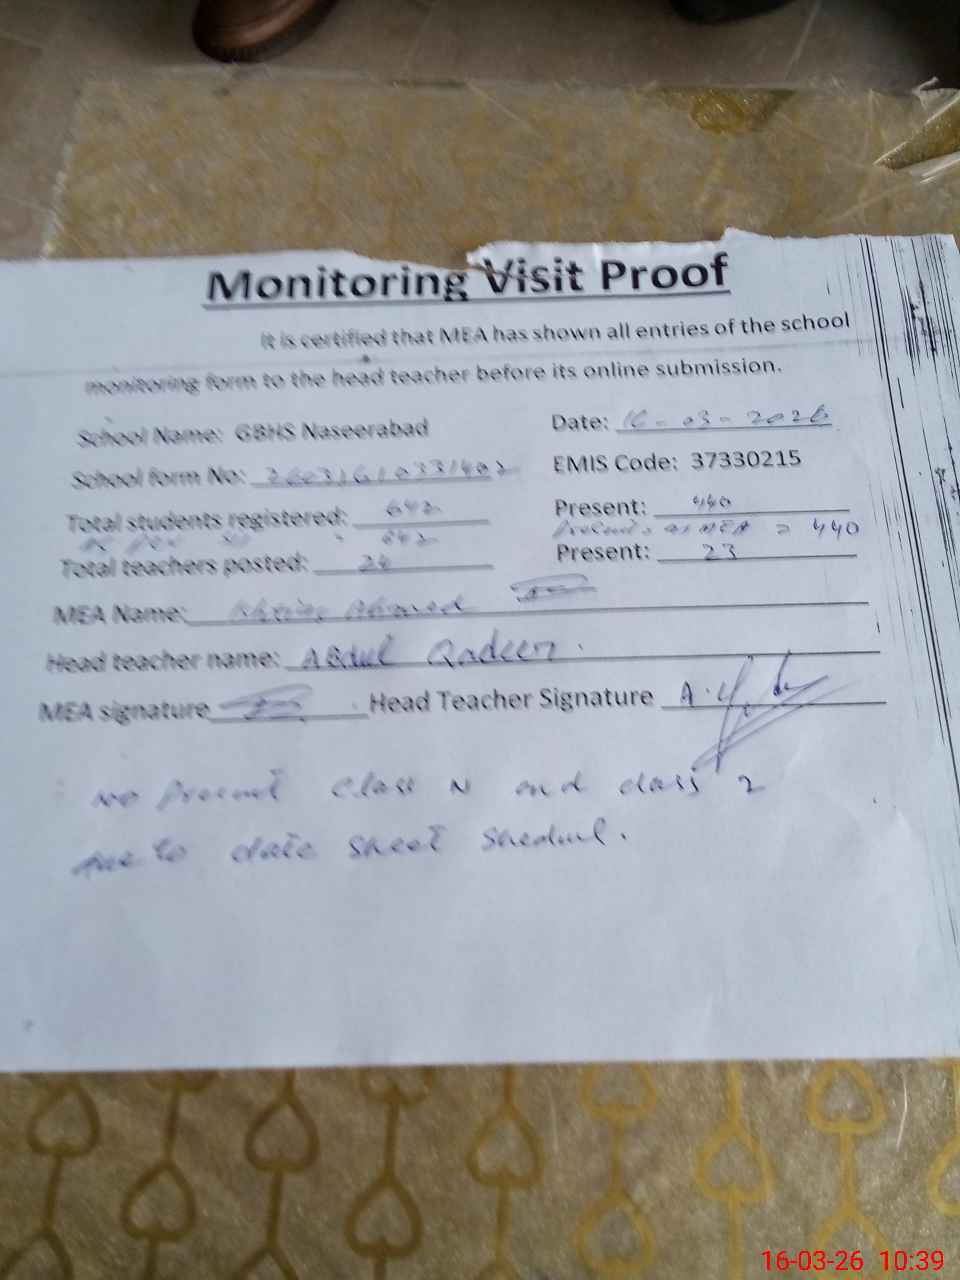 Monitoring Visit Proof
It is certified that MEA has shown all entries of the school
monitoring form to the head teacher before its online submission.
School Name: GBHS Naseerabad Date: 16-03-2026
School form No: EMIS Code: 37330215
Total students registered: 642 Present: 440
642 as MEA = 440
Total teachers posted: Present: 23
MEA Name: Ahmed
Head teacher name: ABdul Qadeer.
MEA signature Head Teacher Signature
No Present Class N and class 2
due to date sheet Shedul.
16-03-26 10:39